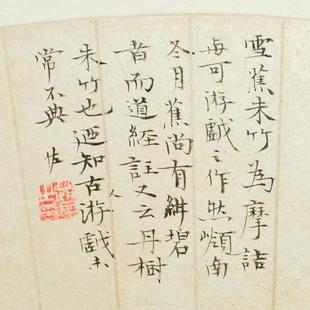 雪蕉朱竹為摩詰
游戲之作然嶺南
冬月蕉尚有緋碧
者而道經註又云丹樹
朱竹也迺知古人游戲未
常不典 佐